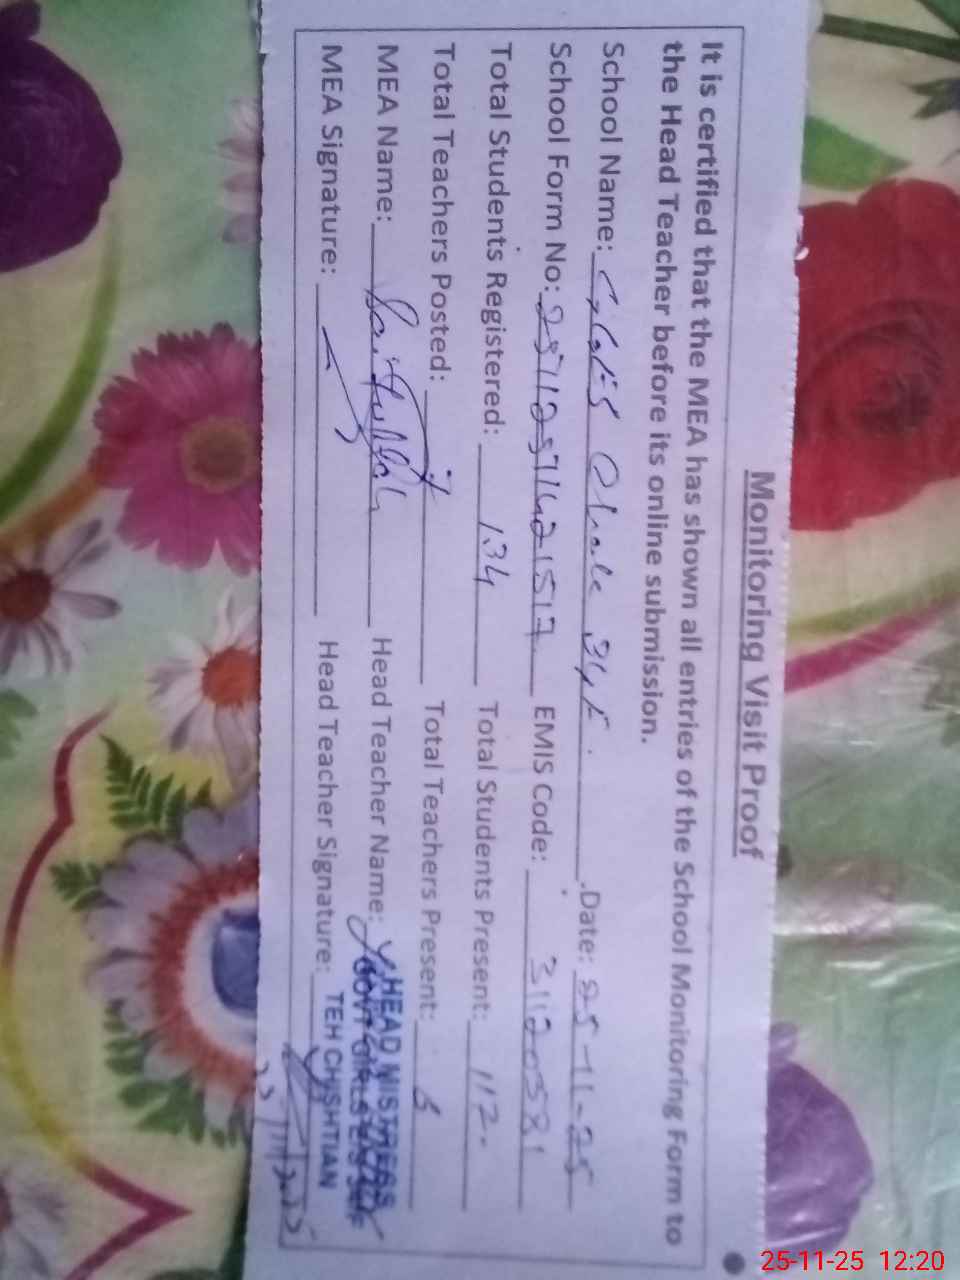 Monitoring Visit Proof
It is certified that the MEA has shown all entries of the School Monitoring Form to
the Head Teacher before its online submission.
School Name: Date: 25-11-25
School Form No: EMIS Code: 31120581
Total Students Registered: 134 Total Students Present: 112.
Total Teachers Posted: Total Teachers Present:
MEA Name: Head Teacher Name:
MEA Signature: Head Teacher Signature:
HEAD MISTRESS
GOVT GIRLS
TEH CHISHTIAN
25-11-25 12:20